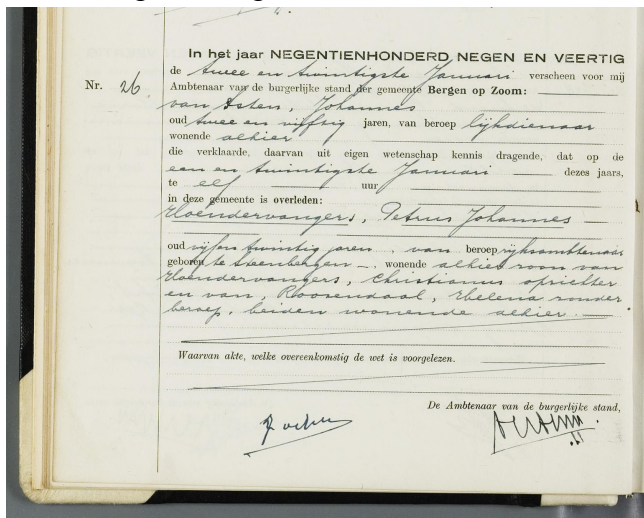 In het jaar NEGENTIENHONDERD NEGEN EN VEERTIG
de twee en twintigste Januari verscheen voor mij
Nr. 26. Ambtenaar van de burgerlijke stand der gemeente Bergen op Zoom:
van Asten, Johannes
oud twee en vijftig jaren, van beroep lijkdienaar
wonende alhier
die verklaarde, daarvan uit eigen wetenschap kennis dragende, dat op de
een en twintigste Januari dezes jaars,
te elf uur
in deze gemeente is overleden:
Hoendervangers, Petrus Johannes
oud vijf en twintig jaren, van beroep rijksambtenaar
geboren te Steenbergen, wonende alhier zoon van
Hoendervangers, Christianus oprichter
en van, Roosendaal, Helena zonder
beroep, beiden wonende alhier.
Waarvan akte, welke overeenkomstig de wet is voorgelezen.
De Ambtenaar van de burgerlijke stand,